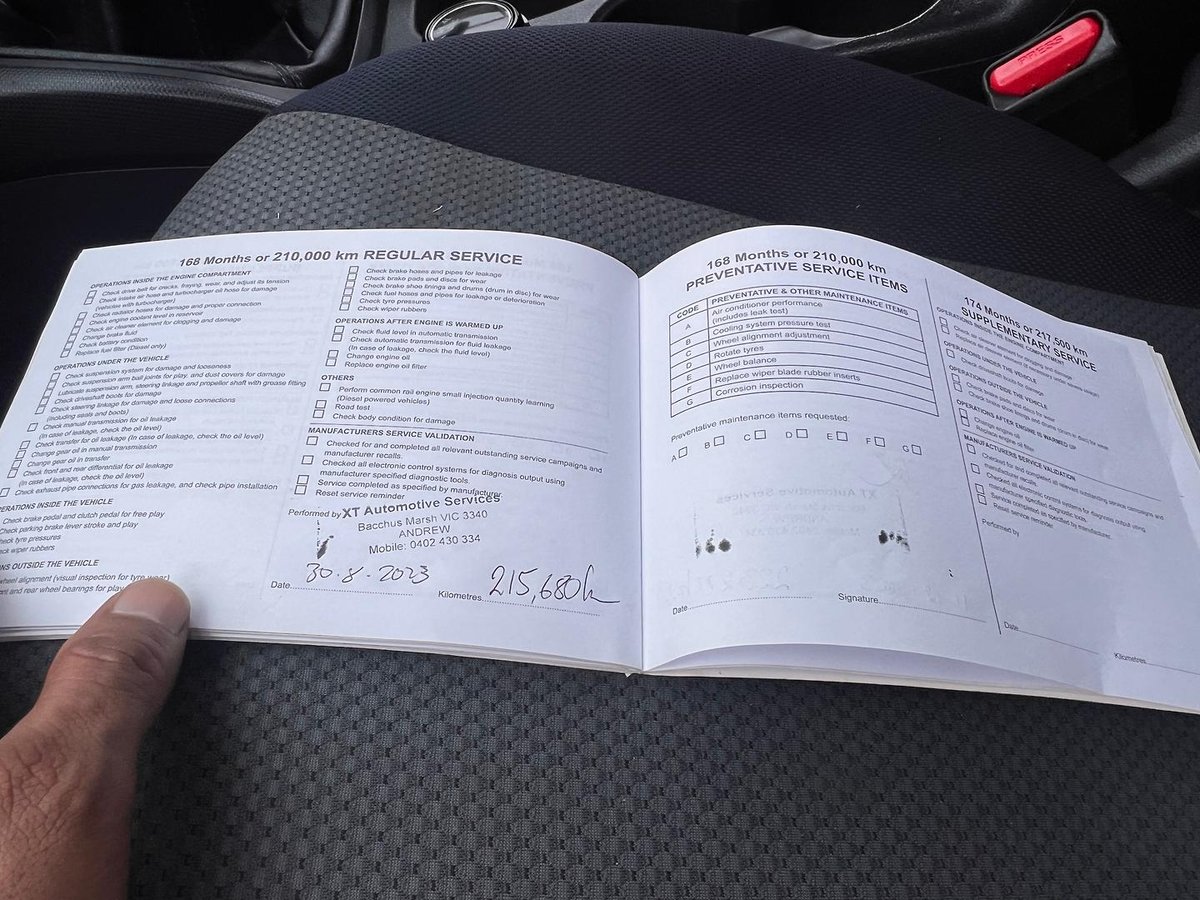 PRESS
168 Months or 210,000 km REGULAR SERVICE
OPERATIONS INSIDE THE ENGINE COMPARTMENT
Check drive belt for cracks, fraying, wear, and adjust its tension
Check intake air hose and turbocharger oil hose for damage
(vehicles with turbocharger)
Check radiator hoses for damage and proper connection
Check engine coolant level in reservoir
Check air cleaner element for clogging and damage
Change brake fluid
Check battery condition
Replace fuel filter (Diesel only)
OPERATIONS UNDER THE VEHICLE
Check suspension system for damage and looseness
Check suspension arm ball joints for play, and dust covers for damage
Lubricate suspension arm, steering linkage and propeller shaft with grease fitting
Check driveshaft boots for damage
Check steering linkage for damage and loose connections
(including seals and boots)
Check manual transmission for oil leakage
(In case of leakage, check the oil level)
Check transfer for oil leakage (In case of leakage, check the oil level)
Change gear oil in manual transmission
Change gear oil in transfer
Check front and rear differential for oil leakage
(In case of leakage, check the oil level)
Check exhaust pipe connections for gas leakage, and check pipe installation
PERATIONS INSIDE THE VEHICLE
Check brake pedal and clutch pedal for free play
Check parking brake lever stroke and play
heck tyre pressures
heck wiper rubbers
NS OUTSIDE THE VEHICLE
wheel alignment (visual inspection for tyre wear)
nt and rear wheel bearings for play
Check brake hoses and pipes for leakage
Check brake pads and discs for wear
Check brake shoe linings and drums (drum in disc) for wear
Check fuel hoses and pipes for leakage or deterioration
Check tyre pressures
Check wiper rubbers
OPERATIONS AFTER ENGINE IS WARMED UP
Check fluid level in automatic transmission
Check automatic transmission for fluid leakage
(In case of leakage, check the fluid level)
Change engine oil
Replace engine oil filter
OTHERS
Perform common rail engine small injection quantity learning
(Diesel powered vehicles)
Road test
Check body condition for damage
MANUFACTURERS SERVICE VALIDATION
Checked for and completed all relevant outstanding service campaigns and
manufacturer recalls.
Checked all electronic control systems for diagnosis output using
manufacturer specified diagnostic tools.
Service completed as specified by manufacturer
Reset service reminder
Performed by XT Automotive Services
Bacchus Marsh VIC 3340
ANDREW
Mobile: 0402 430 334
Date 30.8.2023 Kilometres 215,680k
168 Months or 210,000 km
PREVENTATIVE SERVICE ITEMS
CODE PREVENTATIVE & OTHER MAINTENANCE ITEMS
A Air conditioner performance
(includes leak test)
B Cooling system pressure test
C Wheel alignment adjustment
D Rotate tyres
E Wheel balance
F Replace wiper blade rubber inserts
G Corrosion inspection
Preventative maintenance items requested:
A B C D E F G
Date Signature
174 Months or 217,500 km
SUPPLEMENTARY SERVICE
OPERATIONS INSIDE THE ENGINE COMPARTMENT
OPERATIONS UNDER THE VEHICLE
Check driveshaft boots for damage
OPERATIONS OUTSIDE THE VEHICLE
Check brake pads and discs for wear
Check brake shoe linings and drums (drum in disc) for wear
OPERATIONS AFTER ENGINE IS WARMED UP
Change engine oil
Replace engine oil filter
MANUFACTURERS SERVICE VALIDATION
Checked for and completed all relevant outstanding service campaigns and
manufacturer recalls.
Checked all electronic control systems for diagnosis output using
manufacturer specified diagnostic tools.
Service completed as specified by manufacturer.
Reset service reminder
Performed by
Date
Kilometres